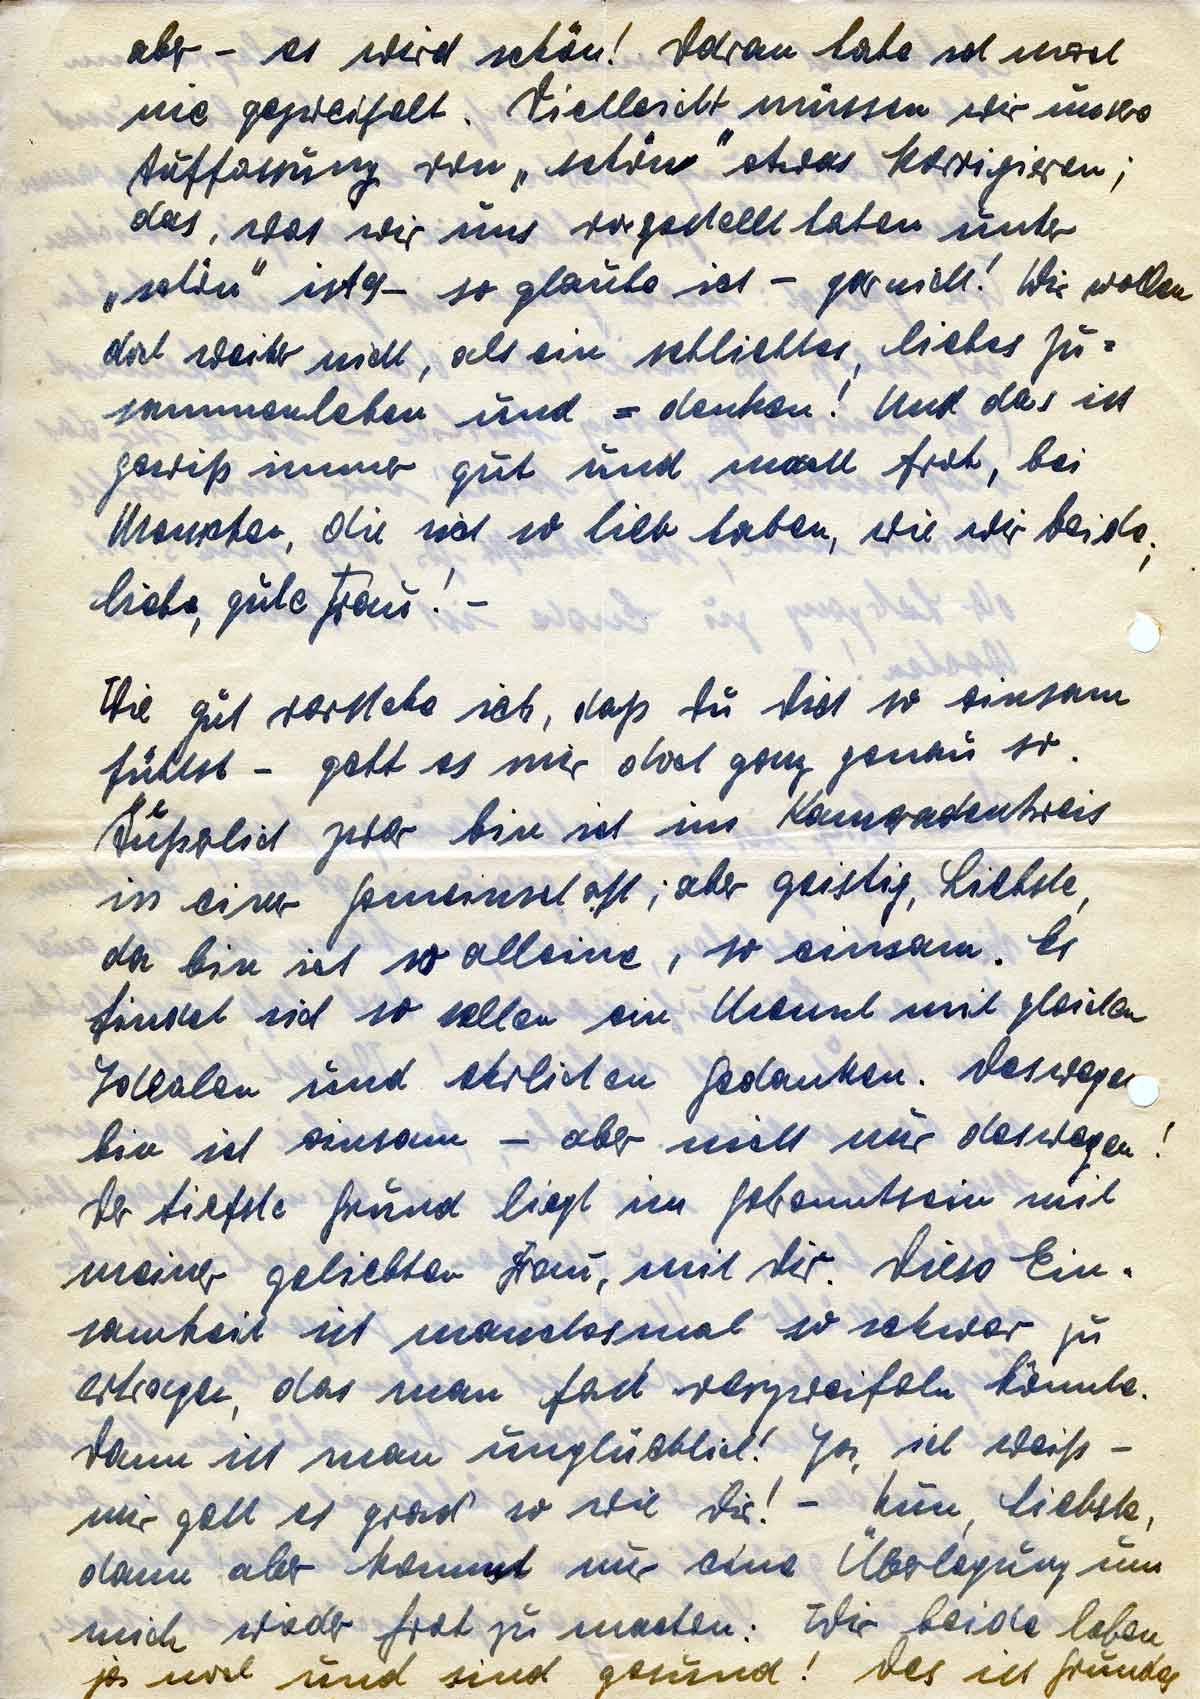 aber – es wird schön! Daran habe ich noch
nie gezweifelt. Vielleicht müssen wir unsere
Auffassung von „schön" etwas korrigieren;
das, was wir uns vorgestellt haben unter
„schön" ist es – so glaube ich – garnicht! Wir wollen
doch weiter nicht, als ein schlichtes, liebes Zu=
sammenleben und =denken! Und das ist
gewiß immer gut und macht froh, bei
Menschen, die sich so lieb haben, wie wir beide,
liebe, gute Frau! –
Wie gut verstehe ich, daß Du Dich so einsam
fühlst – geht es mir doch ganz genau so.
Äußerlich zwar bin ich im Kameradenkreis
in einer Gemeinschaft; aber geistig, Liebste,
da bin ich so alleine, so einsam. Es
findet sich so selten ein Mensch mit gleichen
Idealen und ehrlichen Gedanken. Deswegen
bin ich einsam – aber nicht nur deswegen!
Der tiefste Grund liegt im Getrenntsein mit
meiner geliebten Frau, mit Dir. Diese Ein-
samkeit ist manchesmal so schwer zu
ertragen, das man fast verzweifeln könnte.
Dann ist man unglücklich! Ja, ich weiß –
mir geht es grad so wie Dir! – Nun, Liebste,
dann aber kommt nur eine Überlegung um
mich wieder froh zu machen: Wir beide leben
ja noch und sind gesund! Das ist Grundes